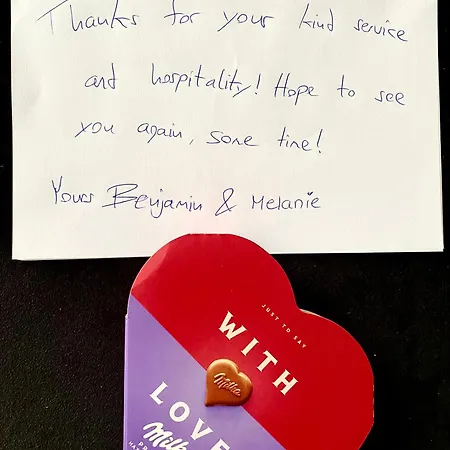 Thanks for your kind service
and hospitality! Hope to see
you again, some time!
Yours Benjamin & Melanie
JUST TO SAY
WITH
LOVE
Milka
Milka